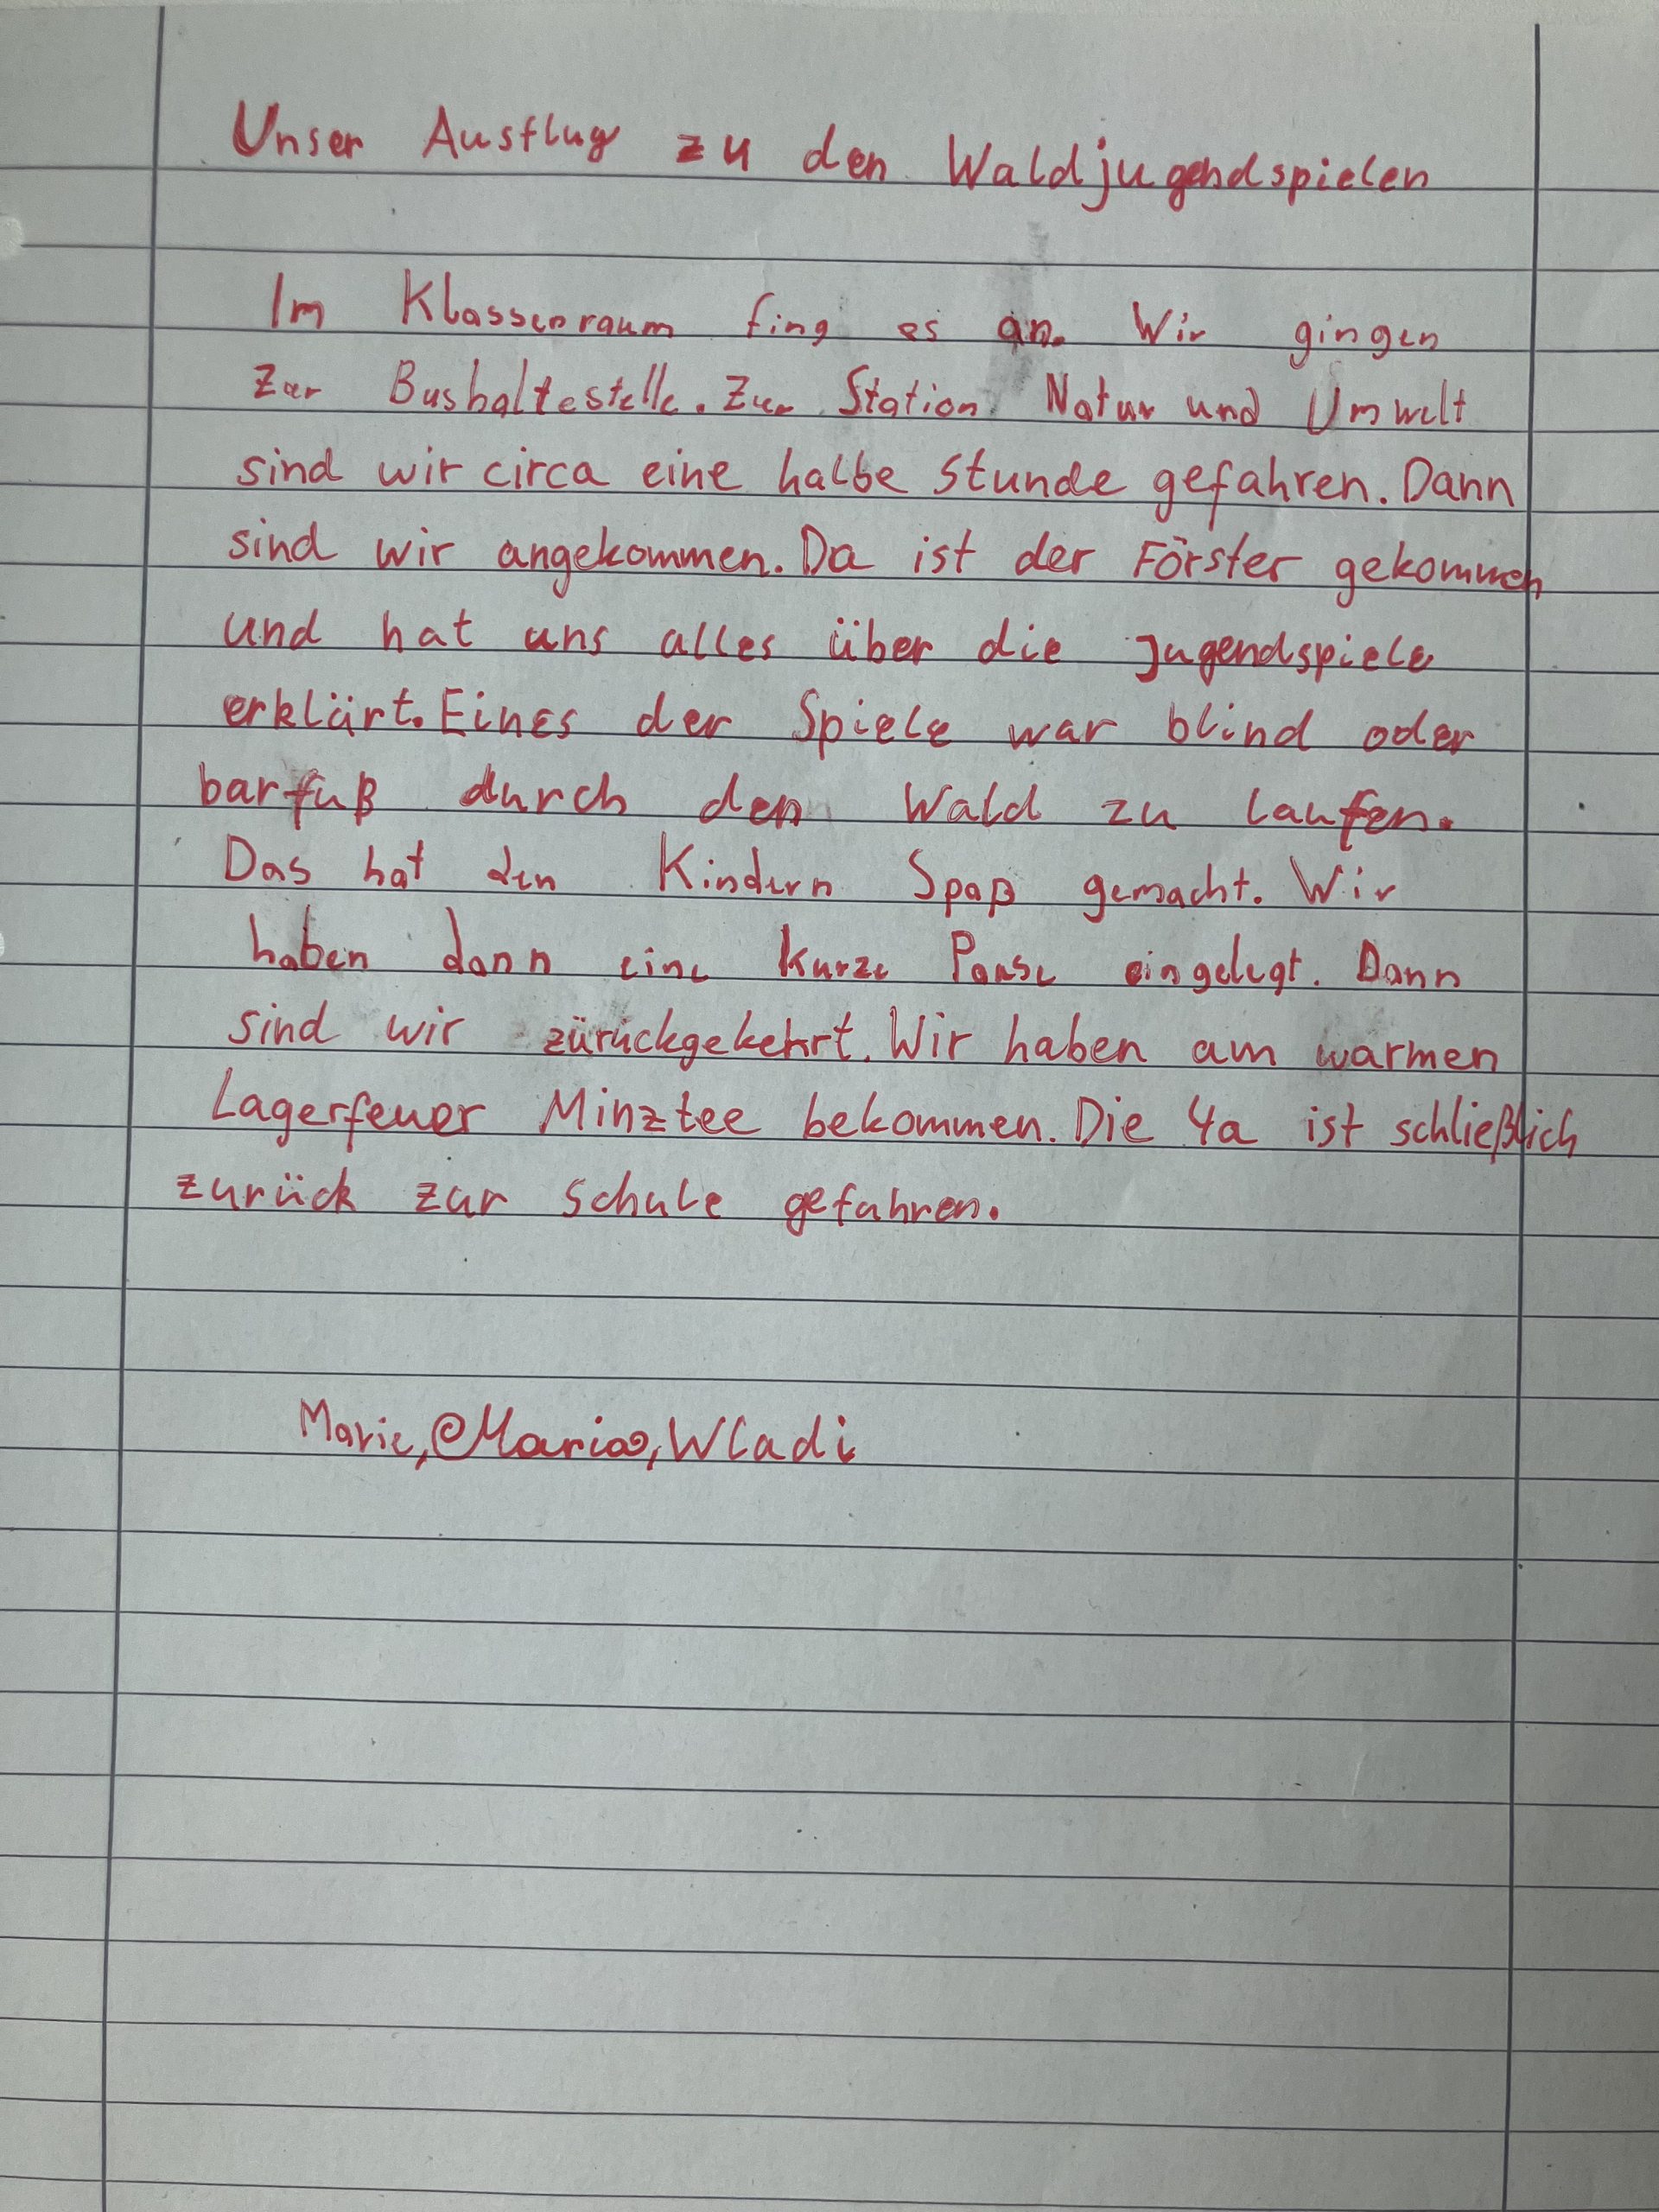 Unser Ausflug zu den Waldjugendspielen
Im Klassenraum fing es an. Wir gingen
zur Bushaltestelle. Zur Station Natur und Umwelt
sind wir circa eine halbe Stunde gefahren. Dann
sind wir angekommen. Da ist der Förster gekommen
und hat uns alles über die Jugendspiele
erklärt. Eines der Spiele war blind oder
barfuß durch den Wald zu laufen.
Das hat den Kindern Spaß gemacht. Wir
haben dann eine kurze Pause eingelegt. Dann
sind wir zürückgekehrt. Wir haben am warmen
Lagerfeuer Minztee bekommen. Die 4a ist schließlich
zurück zur Schule gefahren.
Marie, Maria, Wladi